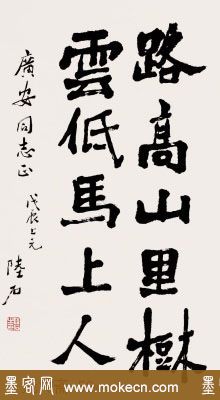 路高山里樹
雲低馬上人
廣安同志正
戊辰上元 陸石
墨客网 www.mokecn.com 墨客网